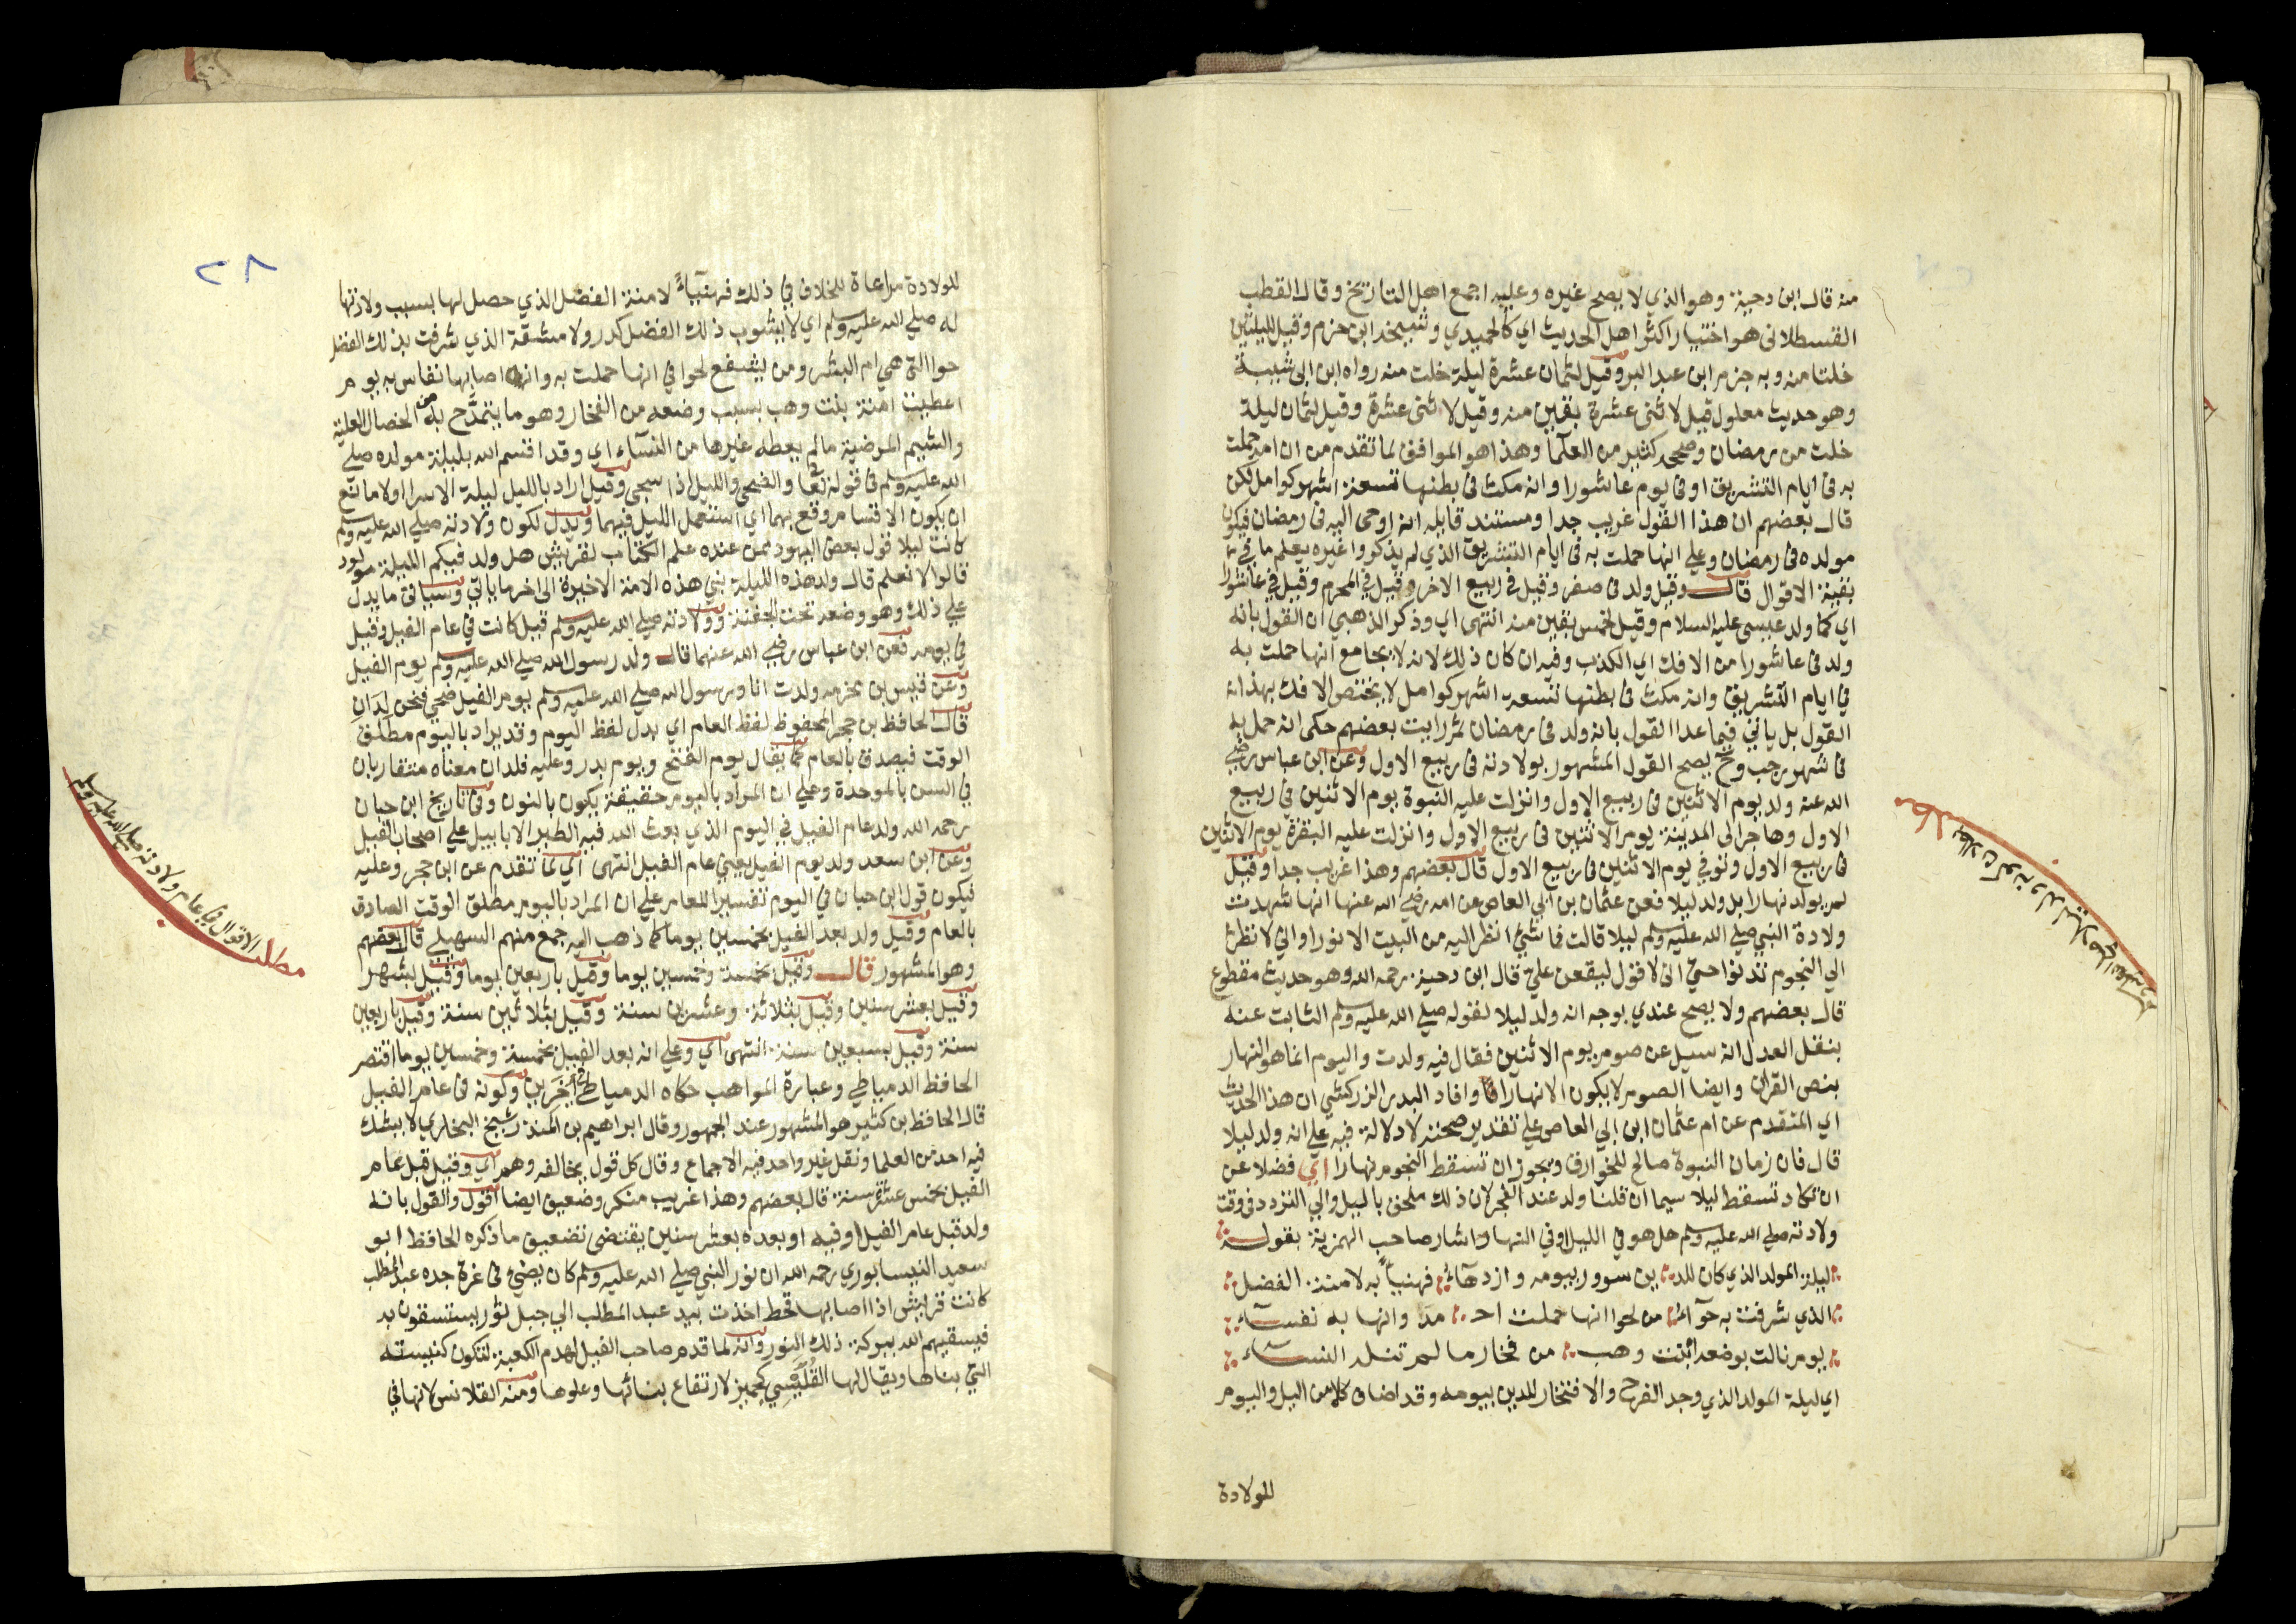 منه قال ابن دحية وهو الذي لا يصح غيره وعليه اجمع اهل التاريخ وقال القطب
القسطلانى هو اختيار اكثر اهل الحديث اي كالحميدي وشيخه ابن حزم وقيل لليلتين
خلتا منه وبه جزم ابن عبد البر وقيل لثمان عشرة ليلة خلت منه رواه ابن ابى شيبة
وهو حديث معلول قيل لاثنى عشرة بقين منه وقيل لاثنى عشرة وقيل لثمان ليلة
خلت من رمضان وصححه كثير من العلما وهذا هو الموافق لما تقدم من ان امه حملت
به فى ايام التشريق او فى يوم عاشورا وانه مكث فى بطنها تسعة اشهر كوامل لكن
قال بعضهم ان هذا القول غريب جدا ومستند قايله انه اوحى اليه فى رمضان فيكون
مولده فى رمضان وعلى انها حملت به فى ايام التشريق الذي لم يذكروا غيره يعلم ما فى
بقية الاقوال قال وقيل ولد فى صفر وقيل فى ربيع الاخر وقيل في المحرم وقيل في عاشورا
اي كما ولد عيسى عليه السلام وقيل لخمس بقين منه انتهى اي وذكر الذهبي ان القول بانه
ولد فى عاشورا من الافك اي الكذب وفيه ان كان ذلك لانه لا يجامع انها حملت به
في ايام التشريق وانه مكث فى بطنها تسعة اشهر كوامل لا يختص الافك بهذا
القول بل ياتي فيما عدا القول بانه ولد فى رمضان ثم رايت بعضهم حكى انه حمل به
فى شهر رجب وح يصح القول المشهور بولادته فى ربيع الاول وعن ابن عباس رضي
الله عنه ولد يوم الاثنين فى ربيع الاول وانزلت عليه النبوة يوم الاثنين في ربيع
الاول وهاجر الى المدينة يوم الاثنين فى ربيع الاول وانزلت عليه البقرة يوم الاثنين
فى ربيع الاول وتوفي يوم الاثنين فى ربيع الاول قال بعضهم وهذا غريب جدا وقيل
لم يولد نهارا بل ولد ليلا فعن عثمان بن ابي العاص عن امه رضي الله عنها انها شهدت
ولادة النبي صلى الله عليه وسلم ليلا قالت فما شيئ انظر اليه من البيت الا نورا واني لانظر
الي النجوم تدنوا حتي انى لاقول ليقعن علي قال ابن دحية رحمه الله وهو حديث مقطوع
قال بعضهم ولا يصح عندي بوجه انه ولد ليلا لقوله صلي الله عليه وسلم الثابت عنه
بنقل العدل انه سيل عن صوم يوم الاثنين فقال فيه ولدت واليوم انما هو النهار
بنص القران وايضا الصوم لا يكون الا نهارا وافاد البدر الزركشي ان هذا الحديث
اي المتقدم عن ام عثمان ابن ابي العاص علي تقدير صحته لا دلالة فيه علي انه ولد ليلا
قال فان زمان النبوة صالح للخوارق ويجوز ان تسقط النجوم نهارا اي فضلا عن
ان تكاد تسقط ليلا سيما ان قلنا ولد عند الفجر لان ذلك ملحق بالليل والي التردد في وقت
ولادته صلي الله عليه وسلم هل هو في الليل او في النهار اشار صاحب الهمزية بقوله
ليلة المولد الذي كان للد ين سرور بيومه وازدهاء فهنيأ به لامنة الفضل
الذي شرفت به حواء من لحوا انها حملت احـ مد وانها به نفساء
يوم نالت بوضعه ابنت وهب من فخار ما لم تنله النساء
اي ليلة المولد الذي وجد الفرح والافتخار للدين بيومه وقد اضاف كلا من اليل واليوم
للولادة
مطلب
٢٨
للولادة مراعاة للخلاف في ذلك فهنيآءً لامنة الفضل الذي حصل لها بسبب ولادتها
له صلي الله عليه وسلم اي لا يشوب ذلك الفضل كدر ولا مشقة الذي شرفت بذلك الفضل
حوا التي هي ام البشر ومن يشفع لحوا في انها حملت به وانه اصابها نفاس به يوم
اعطيت امنة بنت وهب بسبب وضعه من الفخار وهو ما يتمدح به من الخصال العلية
والشيم المرضية ما لم يعطه غيرها من النساء اي وقد اقسم الله بليلة مولده صلي
الله عليه وسلم فى قوله تعا والضحى والليل اذا سجى وقيل اراد بالليل ليلة الاسرا ولا مانع
ان يكون الاقسام وقع بهما اي استعمل الليل فيهما ويدل لكون ولادته صلي الله عليه وسلم
كانت ليلا قول بعض اليهود ممن عنده علم الكتاب لقريش هل ولد فيكم الليلة مولود
قالوا لا نعلم قال ولد هذه الليلة نبي هذه الامة الاخيرة الى اخر ما ياتي وسياتى ما يدل
علي ذلك وهو وضعه تحت الجفنة وولادته صلي الله عليه وسلم قيل كانت في عام الفيل وقيل
في يومه فعن ابن عباس رضي الله عنهما قال ولد رسول الله صلي الله عليه وسلم يوم الفيل
وعن قيس بن مخرمه ولدت انا ورسول الله صلي الله عليه وسلم يوم الفيل ضحى فنحن لدان
قال الحافظ بن حجر المحفوظ لفظ العام اي بدل لفظ اليوم وقد يراد باليوم مطلق
الوقت فيصدق بالعام كما يقال يوم الفتح ويوم بدر وعليه فلدان معناه متقاربان
في السن بالموحدة وعلي ان المراد باليوم حقيقة يكون بالنون وفى تاريخ ابن حبان
رحمه الله ولد عام الفيل في اليوم الذي بعث الله فيه الطير الابابيل علي اصحاب الفيل
وعن ابن سعد ولد يوم الفيل يعني عام الفيل انتهى اي لما تقدم عن ابن حجر وعليه
فيكون قول ابن حبان في اليوم تفسيرا للعام علي ان المراد باليوم مطلق الوقت الصادق
بالعام وقيل ولد بعد الفيل بخمسين يوما كما ذهب اليه جمع منهم السهيلي قال بعضهم
وهو المشهور قال وقيل بخمسة وخمسين يوما وقيل باربعين يوما وقيل بشهر
وقيل بعشر سنين وقيل بثلاثة وعشرين سنة وقيل بثلاثين سنة وقيل باربعين
سنة وقيل بسبعين سنة انتهى اي وعلي انه بعد الفيل بخمسة وخمسين يوما اقتصر
الحافظ الدمياطي وعبارة المواهب حكاه الدمياطي في اخرين وكونه فى عام الفيل
قال الحافظ بن كثير هو المشهور عند الجمهور وقال ابراهيم بن المنذر شيخ البخاري لا يشك
فيه احد من العلما ونقل غير واحد فيه الاجماع وقال كل قول يخالفه وهم اي وقيل قبل عام
الفيل بخمس عشرة سنة قال بعضهم وهذا غريب منكر وضعيف ايضا اقول والقول بانه
ولد قبل عام الفيل او فيه او بعده بعشر سنين يقتضى تضعيف ما ذكره الحافظ ابو
سعيد النيسابوري رحمه الله ان نور النبي صلي الله عليه وسلم كان يضئ فى غرة جده عبد المطلب
كانت قريش اذا اصابها قحط اخذت بيد عبد المطلب الي جبل ثور يستسقون به
فيسقيهم الله ببركة ذلك النور وانه لما قدم صاحب الفيل لهدم الكعبة لتكون كنيسته
التي بناها ويقال لها القليس كجميز لارتفاع بنائها وعلوها ومنه القلانس لانها في
مطلب الاقوال في عام ولادته صلي الله عليه وسلم